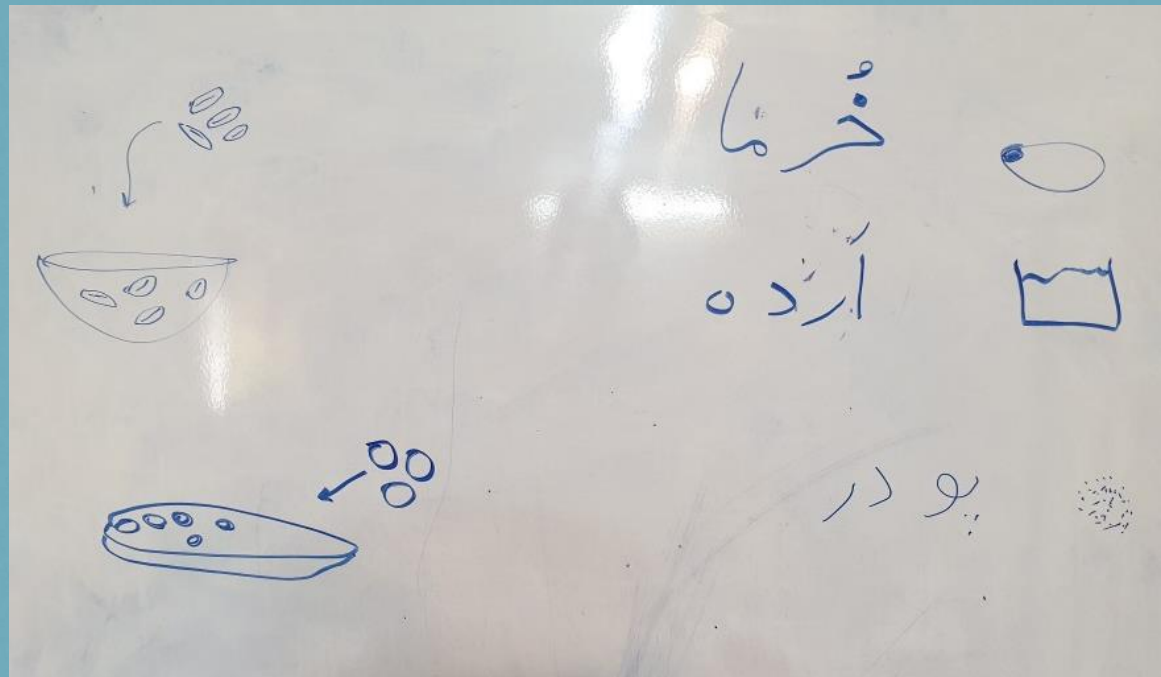 خُرما
اَرده
پودر